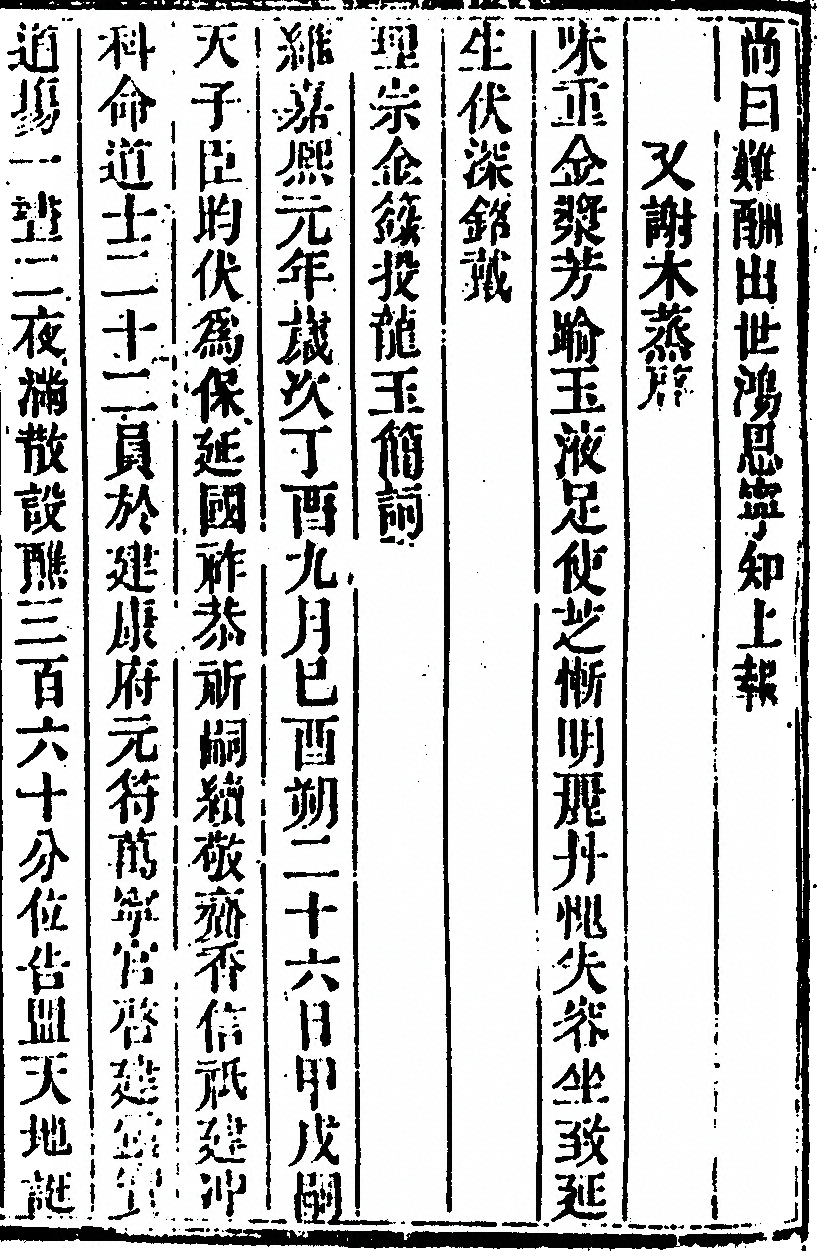 尚曰難酬出世鴻恩寧知上報
又謝木蒸啓
味重金漿芳踰玉液足使芝慚明麗丹愧失容坐致延
生伏深銘戴
理宗金籙投龍玉簡詞
維嘉熙元年歲次丁酉九月己酉朔二十六日甲戌嗣
天子臣昀伏爲保延國祚恭祈嗣續敬齎香信祇建沖
科命道士二十二員於建康府元符萬寧宮啓建靈寶
道場一晝二夜滿散設醮三百六十分位告盟天地誕